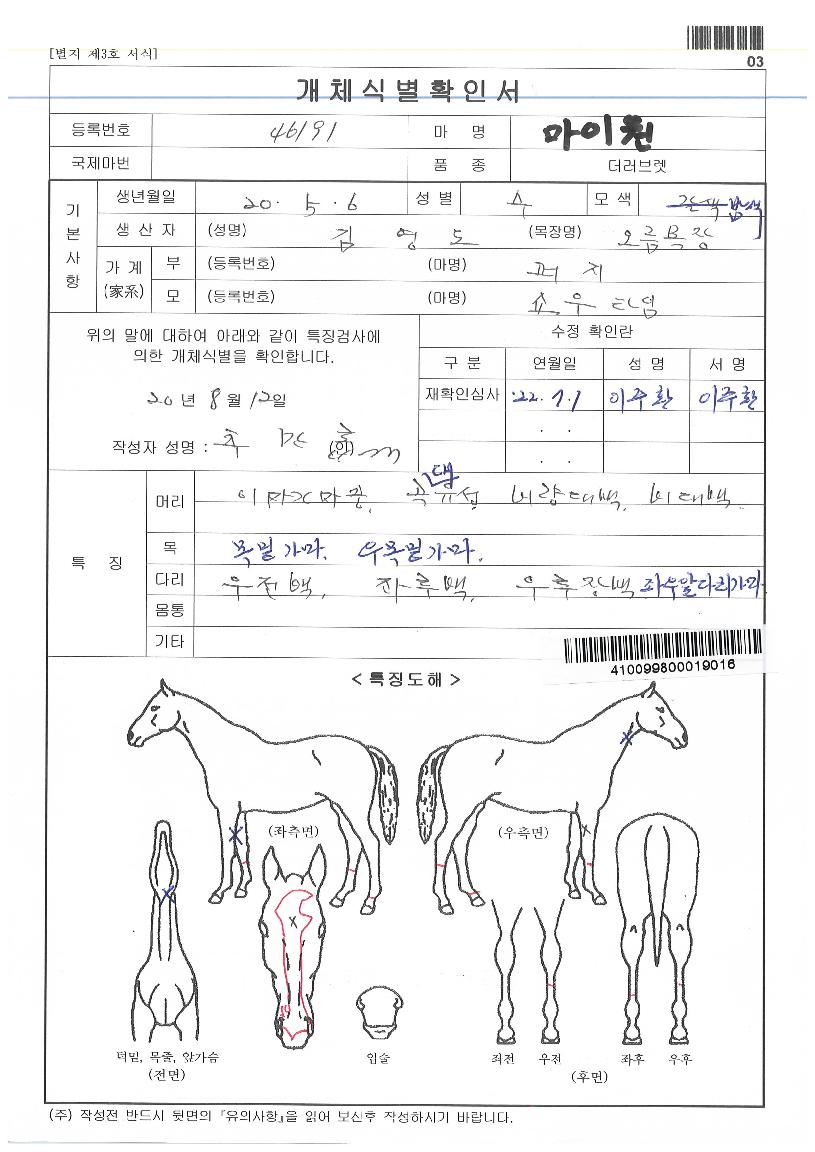 [별지 제3호 서식]
03
개체식별확인서
등록번호 46191 마 명 마이퀸
국제마번 품 종 더러브렛
기본사항
생년월일 20. 5. 6 성별 수 모색 밤색
생 산 자 (성명) 김영도 (목장명) 오름목장
가계 (家系) 부 (등록번호) (마명) 퍼지
모 (등록번호) (마명) 쇼우타임
위의 말에 대하여 아래와 같이 특징검사에
의한 개체식별을 확인합니다.
20년 8월 12일
작성자 성명 : (인)
수정 확인란
구 분 연월일 성 명 서 명
재확인심사 '22. 7. 1 이주환 이주환
. .
. .
특 징
머리 비량대백, 비대백.
목 목밑가마. 우목밑가마.
다리 우전백, 좌후백, 우후장백 좌우앞다리가마
몸통
기타
410099800019016
< 특징도해 >
(좌측면) (우측면)
턱밑, 목줄, 앞가슴
(전면)
입술
좌전 우전 좌후 우후
(후면)
(주) 작성전 반드시 뒷면의 『유의사항』을 읽어 보신후 작성하시기 바랍니다.